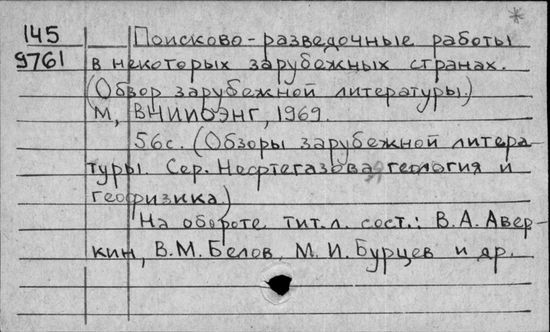 145 Поисково-разведочные работы
9761 в некоторых зарубежных странах.
(Обзор зарубежной литературы.)
М., ВНИИОЭНГ, 1969.
56с. (Обзоры зарубежной литера-
туры. Сер. Нефтегазовая геология и
геофизика.)
На обороте тит.л. сост.: В.А. Авер-
кин, В.М. Белов, М.И. Бурцев и др.